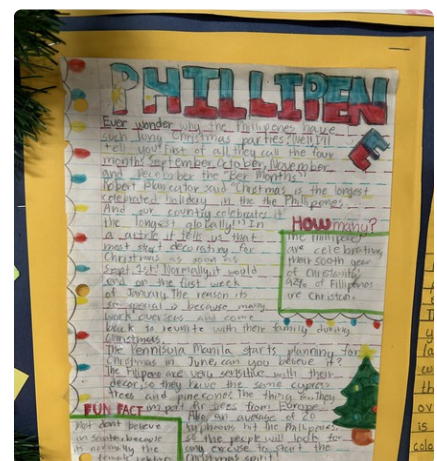 PHILLIPENE
Ever wonder why the Phillipenes have
such long Christmas parties? Well I'll
tell you! First of all they call the four
months September, October, November
and December the "Ber Months"
Robert said "Christmas is the longest
celebrated holiday in the the Phillipenes.
And our country celebrates it
the longest globally!" In
a article it tells us that
most start decorating for
Christmas as soon as
Sept. 1st! Normally it would
end on the first week
of January. The reason its
so special is because many
work overseas and come
back to reunite with their family during
Christmas.
The Pennisula Manila starts planning for
Christmas in June, can you believe it?
The Filipans are very sensitive with their
decor, so they have the same cypress
trees and pinecones. The thing is, They
import fir trees from Europe.
Also an average of 20
typhoons hit the Phillipenes
so the people will look for
any excuse to start the
Christmas spirit
HOW many?
The Phillipenes
are celebrating
their 500th year
of Christanity
92% of Fillipenos
are Christan.
FUN FACT
Most dont believe
in santa because
its normally the